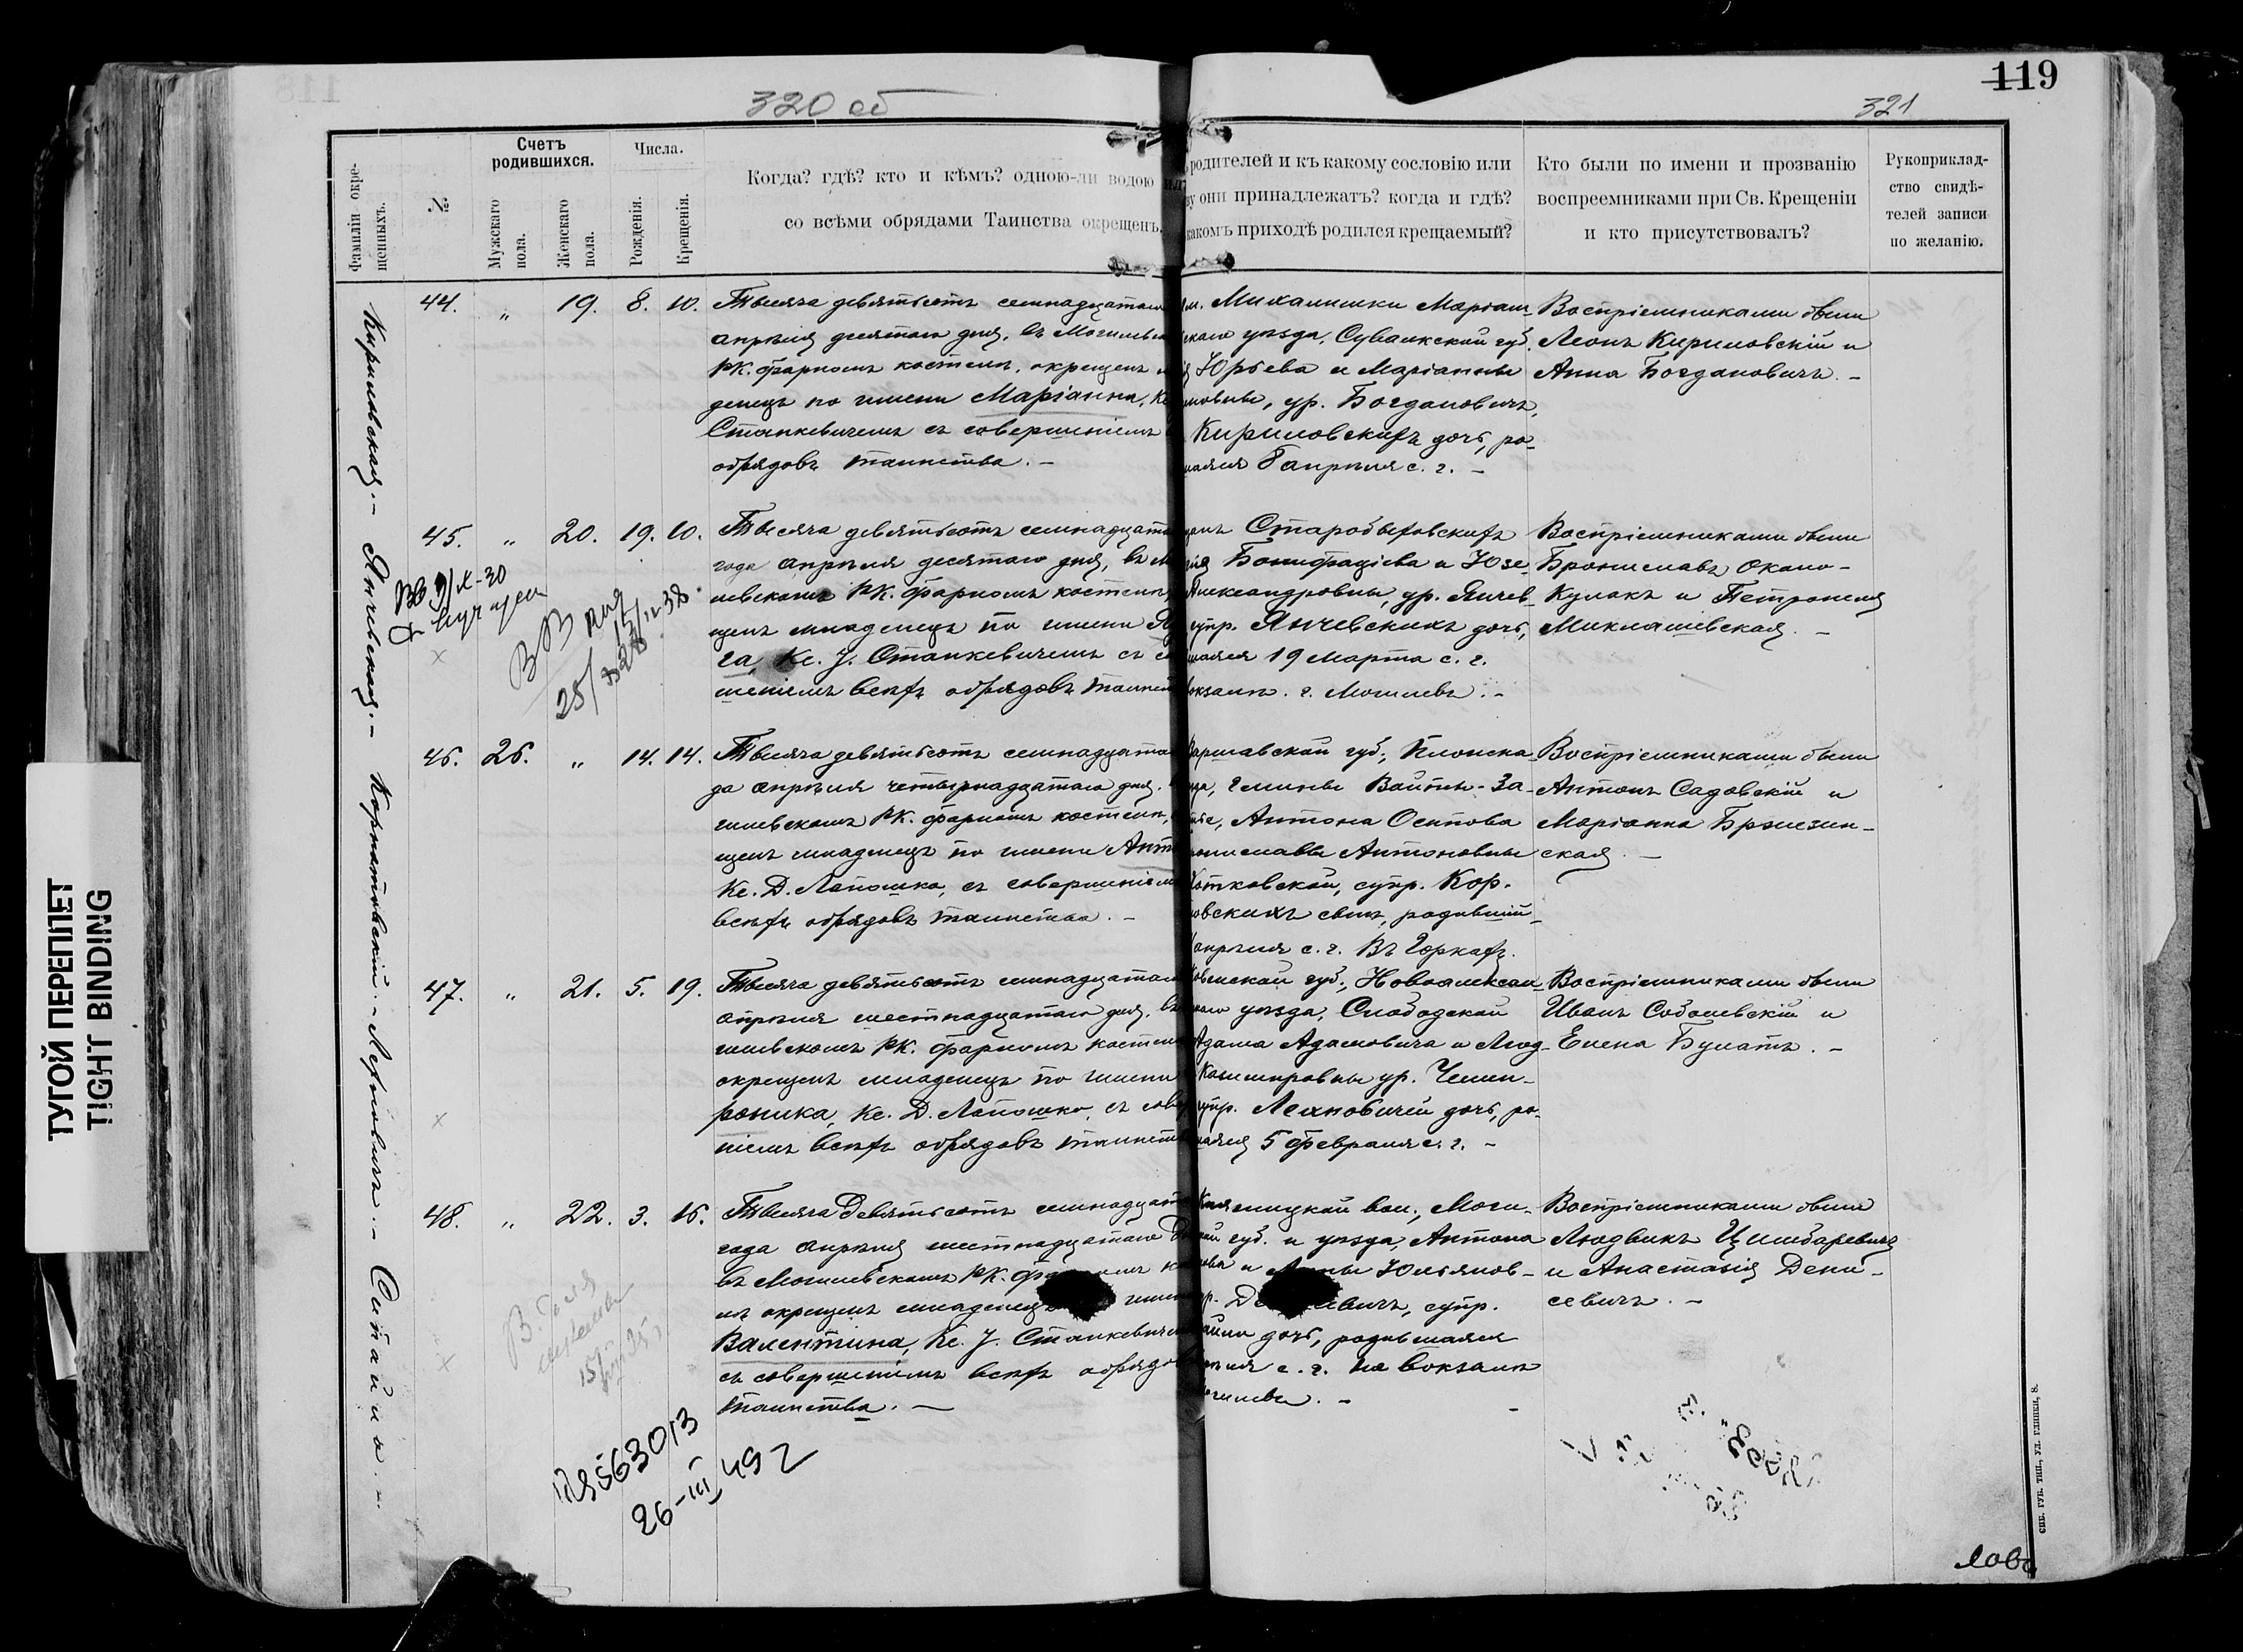 119
320 об
321
ТУГОЙ ПЕРЕПЛЕТ
TIGHT BINDING
Фамиліи окре-
щенныхъ.
№
Счетъ
родившихся.
Мужскаго
пола.
Женскаго
пола.
Числа.
Рожденія.
Крещенія.
Когда? гдѣ? кто и кѣмъ? одною-ли водою ил
со всѣми обрядами Таинства окрещенъ.
родителей и къ какому сословію или
ву они принадлежатъ? когда и гдѣ?
какомъ приходѣ родился крещаемый?
Кто были по имени и прозванію
воспреемниками при Св. Крещеніи
и кто присутствовалъ?
Рукоприклад-
ство свидѣ-
телей записи
по желанію.
Кириловская.-
44. " 19. 8. 10.
Тысяча девятьсотъ семнадцатаго
апрѣля десятаго дня, въ Могилевс
РК. фарномъ костелѣ, окрещенъ м
денецъ по имени Маріанна, Кс
Станкевичемъ съ совершеніемъ
обрядовъ таинства. -
м. Михалишки Маріам-
скаго уѣзда, Сувалкской губ.
Юрьева и Маріанны
новны, ур. Богдановичъ,
Кириловскихъ дочь, ро-
шаяся 8 апрѣля с. г. -
Воспріемниками были
Леонъ Кириловскій и
Анна Богдановичъ. -
Янчевская.-
45. " 20. 19. 10.
Тысяча девятьсотъ семнадцата
года апрѣля десятаго дня, въ М
левскомъ РК. фарномъ костелѣ,
щенъ младенецъ по имени Яд
га, Кс. J. Станкевичемъ съ с
шеніемъ всѣхъ обрядовъ таинст
щанъ Старобыховскихъ
Бонифаціева и Юзе-
Александровны, ур. Янчев-
супр. Янчевскихъ дочь,
шаяся 19 марта с. г.
вокзалѣ. г. Могилевъ. -
Воспріемниками были
Брониславъ Окало-
Кулакъ и Петронеля
Миклашевская. -
9/X-30
25/
38
Корнатовскій.-
46. 26. " 14. 14.
Тысяча девятьсотъ семнадцата
да апрѣля четырнадцатаго дня,
гилевскомъ РК. фарномъ костелѣ,
щенъ младенецъ по имени Анто
Кс. Д. Лапошко, съ совершеніем
всѣхъ обрядовъ таинства. -
Варшавской губ., Плонска-
да, гмины Войты-За-
Антона Осипова
рониславы Антоновны
Котковской, супр. Кор-
овскихъ сынъ, родивший-
апрѣля с. г. Въ Горкахъ.
Воспріемниками были
Антонъ Садовскій и
Маріанна Бржезин-
ская. -
47. " 21. 5. 19.
Тысяча девятьсотъ семнадцатаго
апрѣля шестнадцатаго дня, въ
гилевскомъ РК. фарномъ костелѣ
окрещенъ младенецъ по имени
роника, Кс. Д. Лапошко, съ сове
ніемъ всѣхъ обрядовъ таинств
Ковенской губ., Новоалексан-
каго уѣзда, Слободской
Адама Адамовича и Люд-
Казимировны ур. Чешн-
супр. Лехновичей дочь, ро-
шаяся 5 февраля с. г. -
Воспріемниками были
Иванъ Соболевскій и
Елена Булатъ. -
Сипайло.-
48. " 22. 3. 16.
Тысяча девятьсотъ семнадцата
года апрѣля шестнадцатаго д
въ Могилевскомъ РК. фарномъ ко
лѣ окрещенъ младенецъ имен
Валентина, Кс. J. Станкевичем
съ совершеніемъ всѣхъ обрядо
таинства. -
Княжицкой вол., Моги-
кой губ. и уѣзда, Антона
и Анны Юльянов-
супр.
дочь, родившаяся
рѣля с. г. на вокзалѣ
огилевъ. -
Воспріемниками были
Людвикъ Цимбаревичъ
и Анастазія Дени-
севичъ. -
563013
26-III 49 г
СПБ. ГУБ. ТИП., УЛ. ГЛИНКИ, 8.